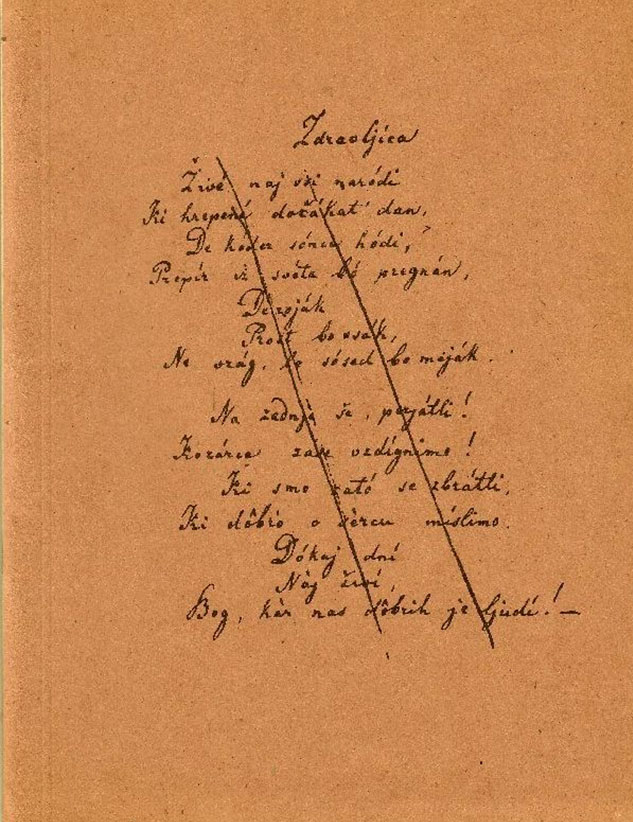 Zdravljica
Živé naj vsi naródi
Ki hrepené dočákat' dan,
De koder sónce hódi,
Prepír iz svéta bó pregnán,
De roják
Prost bo vsák,
Ne vrág, le sósed bo meják.
Na zadnje še, perjátli!
Kozárce zase vzdígnimo!
Ki smo zató se zbrátli,
Ki dôbro v sércu míslimo.
Dókaj dní
Nàj živí
Bog, kàr nas dôbrih je ljudí! —